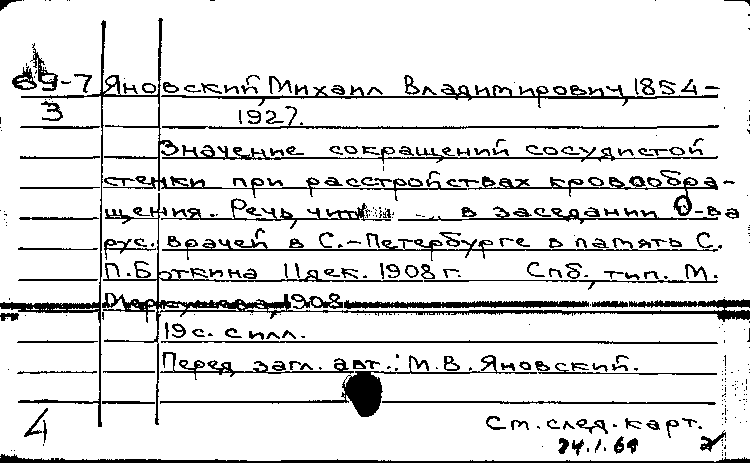 69-7 Яновский, Михаил Владимирович, 1854-
3 1927.
Значение сокращений сосудистой
стенки при расстройствах кровообра-
щения. Речь, чит. ... в заседании О-ва
рус. врачей в С.-Петербурге в память С.
П. Боткина 11 дек. 1908 г. Спб., тип. М.
Меркушева, 1908
19 с. с илл.
Перед загл. авт.: М.В. Яновский.
4 См. след. карт.
24.1.69